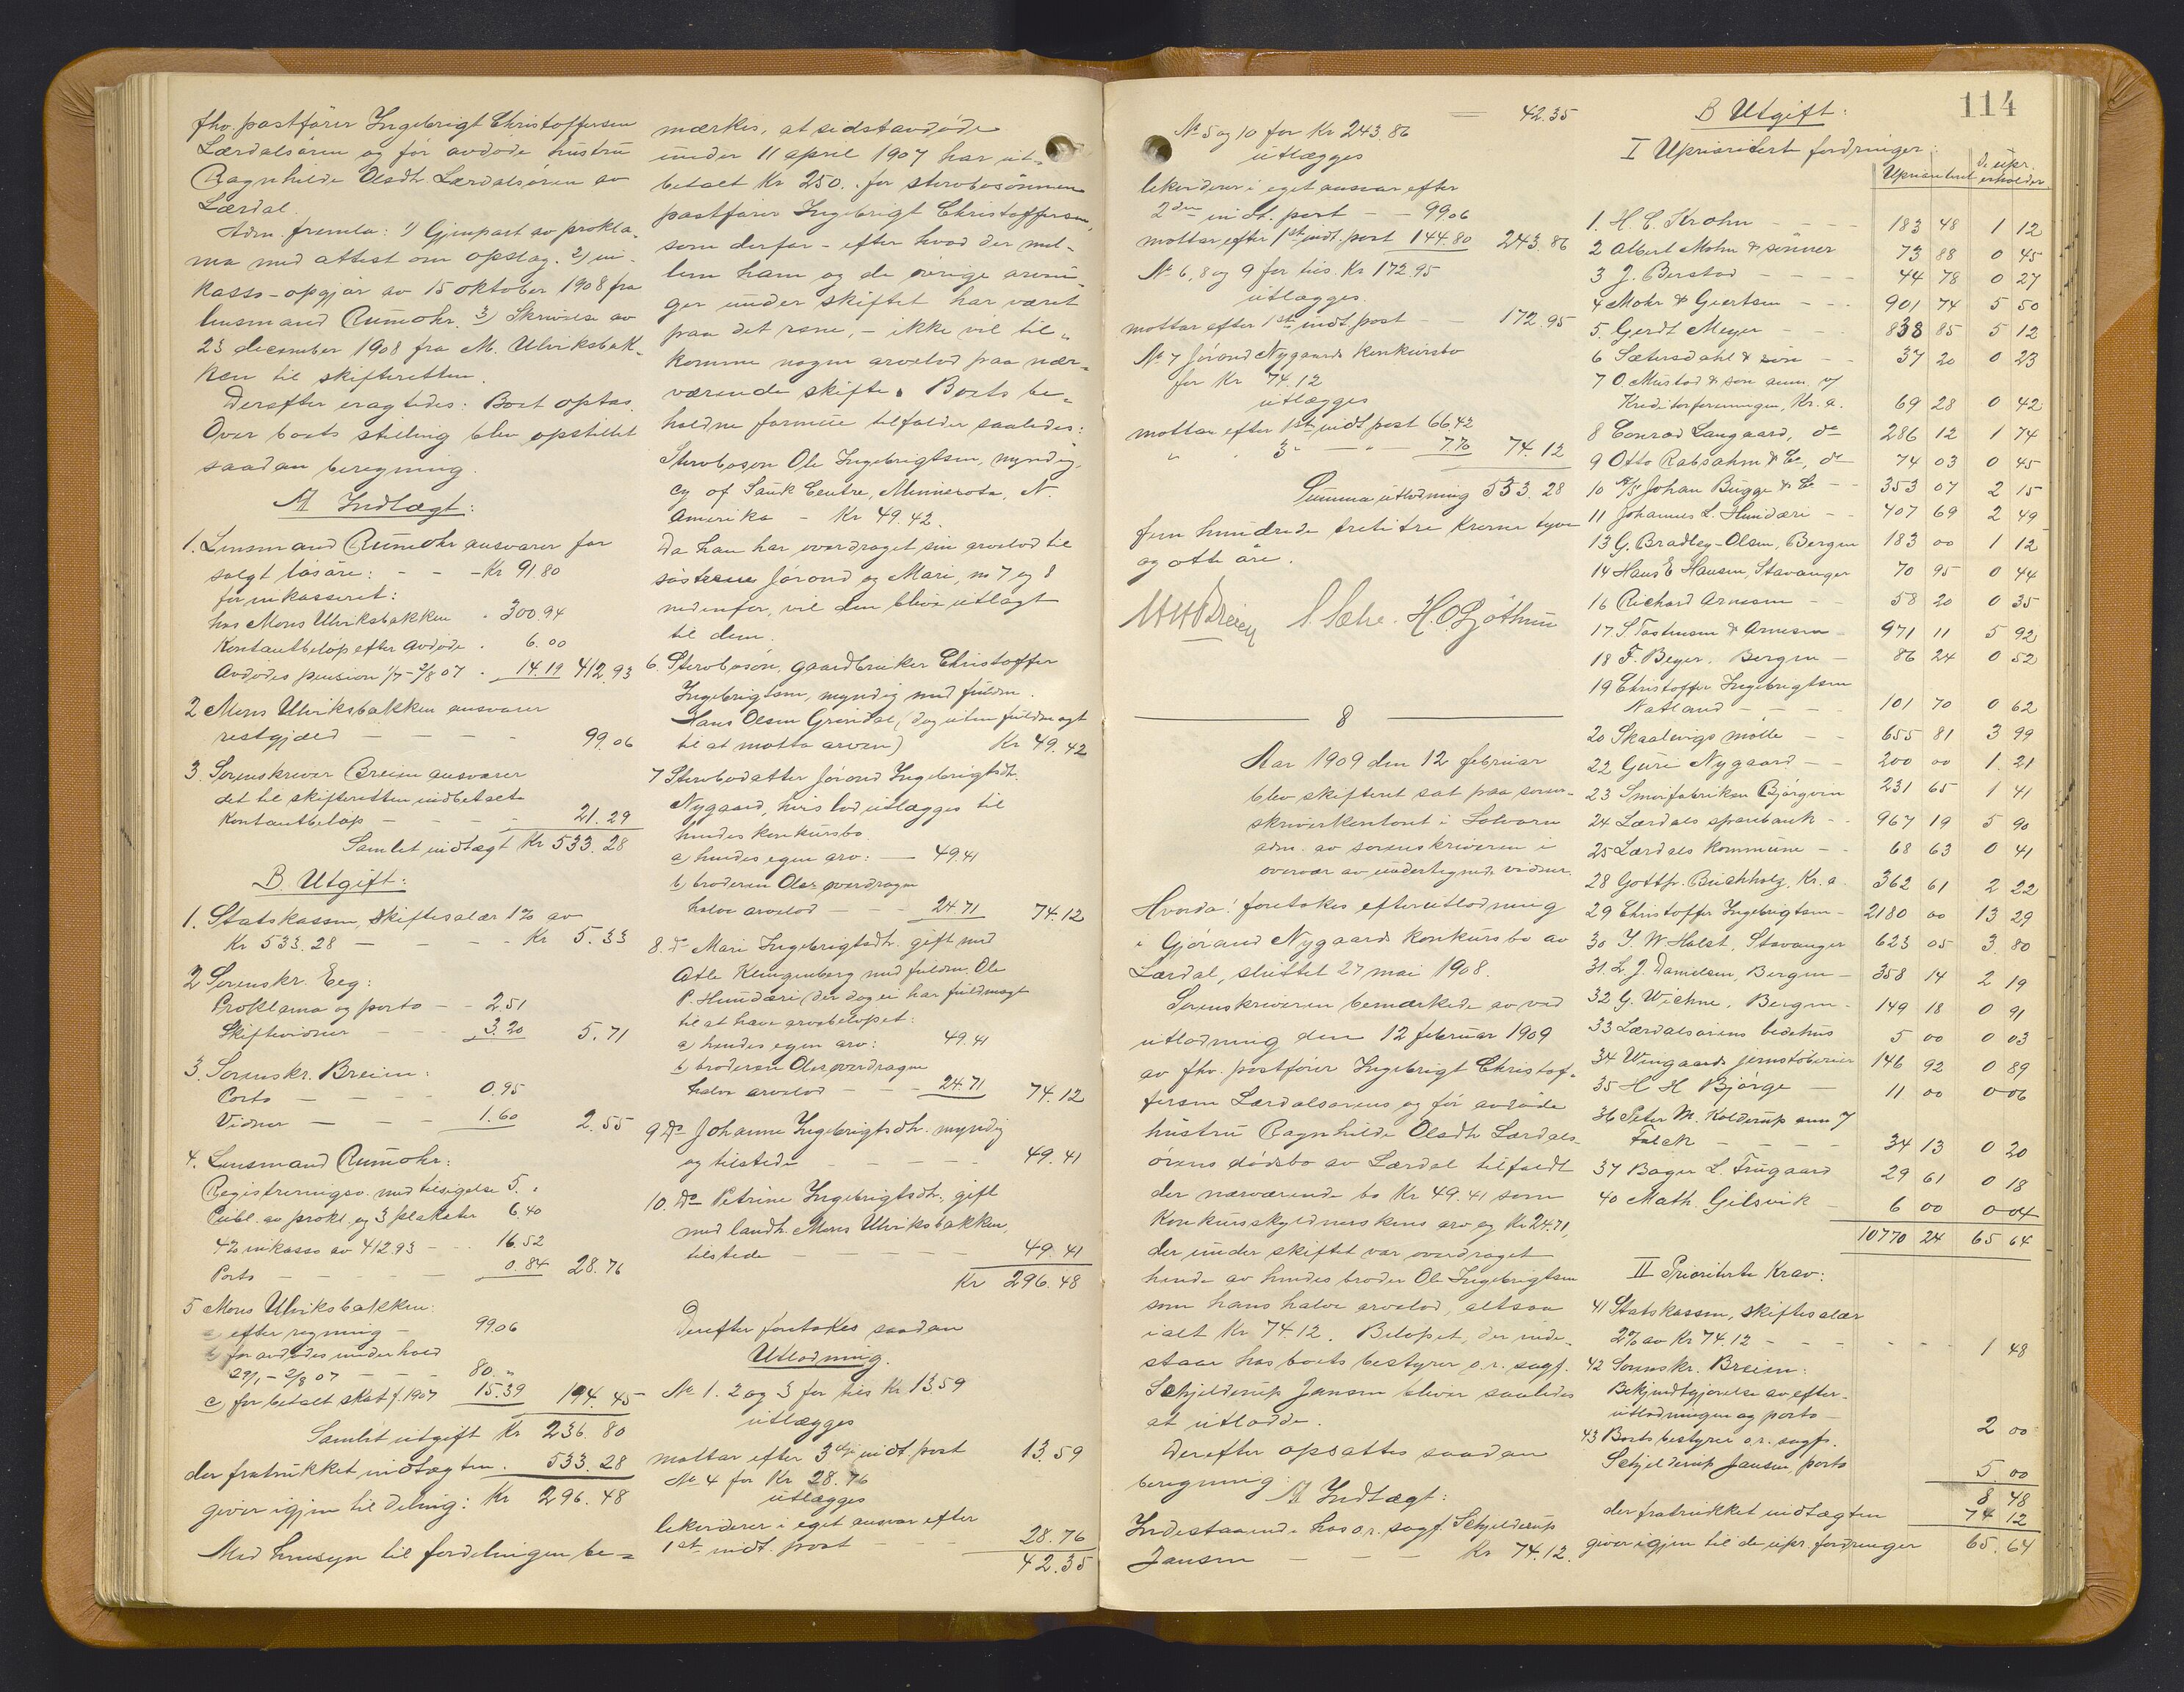 fhv. postfører Ingebrigt Christoffersen
Lærdalsøren og før avdøde hustru
Ragnhilde Olsdtr. Lærdalsøren av
Lærdal.
Adm. fremla: 1) Gjenpart av prokla-
ma med attest om opslag. 2) in-
kasso-opgjør av 15 oktober 1908 fra
lensmand Rumohr. 3) Skrivelse av
23 december 1908 fra M. Ulviksbak-
ken til skifteretten.
Derefter eragtedes: Boet optas.
Over boets stilling blev opstillet
saadan beregning.
A Indtægt:
1. Lensmand Rumohr ansvarer for
solgt løsøre: - - - Kr 91.80
for inkasseret:
hos Mons Ulviksbakken - 300.94
Kontantbeløp efter avdøde - 6.00
Avdødes pension 1/7-2/8 07 - 14.19 412.93
2 Mons Ulviksbakken ansvarer
restgjæld - - - - 99.06
3. Sorenskriver Breien ansvarer
det til skifteretten indbetalte
kontantbeløp - - - - 21.29
Samlet indtægt Kr 533.28
B. Utgift:
1. Statskassen, skiftesalær 1% av
Kr 533.28 - - - - Kr 5.33
2 Sorenskr. Eeg:
Proklama og porto - - 2.51
Skiftevidner - - - 3.20 5.71
3. Sorenskr. Breien:
Porto - - - - 0.95
Vidner - - - 1.60 2.55
4. Lensmand Rumohr:
Registreringsv. med tilsigelse 5. "
Publ. av prokl. og 3 plakater 6.40
4% inkasso av 412.93 - - 16.52
Porto - - - - - 0.84 28.76
5 Mons Ulviksbakken:
a efter regning - 99.06
b for avdødes underhold
29/1 - 2/8 07 - - - 80. "
c, for betalt skat f. 1907 15.39 194.45
Samlet utgift Kr 236.80
der fratrukket indtægten. 533.28
giver igjen til deling: Kr 296.48
Med hensyn til fordelingen be-
mærkes, at sidstavdøde
under 11 april 1907 har ut-
betalt Kr 250. for stervbosønnen
postfører Ingebrigt Christoffersen,
som derfor - efter hvad der mel-
lem ham og de øvrige arvin-
ger under skiftet har været
paa det rene, - ikke vil til-
komme nogen arvelod paa nær-
værende skifte. Boets be-
holdne formue tilfalder saaledes:
Stervbosøn Ole Ingebrigtsen, myndig,
cy of Sauk Centre, Minnesota, N.
Amerika - Kr 49.42.
Da han har overdraget sin arvelod til
søstrene Jørond og Mari, no 7 og 8
nedenfor, vil den bliva utlagt
til dem.
6. Stervbosøn, gaardbruker Christoffer
Ingebrigtsen, myndig med fuldm.
Hans Olsen Grindal (dog uten fuldmagt
til at motta arven) Kr 49.42
7 Stervbodatter Jørond Ingebrigtsdtr.
Nygaard, hvis lod utlægges til
hendes konkursbo.
a) hendes egen arv: - 49.41
b) broderen Oles overdragne
halve arvelod - - - 24.71 74.12
8. do Mari Ingebrigtsdtr. gift med
Atle Klingenberg med fuldm. Ole
P. Hundæri (der dog ei har fuldmagt
til at hæve arvebeløpet:
a) hendes egen arv: 49.41
b) broderen Oles overdragne
halve arvelod - - - 24.71 74.12
9 do Johanne Ingebrigtsdtr. myndig
og tilstede - - - - 49.41
10. do Petrine Ingebrigtsdtr. gift
med landh. Mons Ulviksbakken,
tilstede - - - - 49.41
Kr 296.48
Derefter foretokes saadan
Utlodning.
No 1. 2 og 3 for tils Kr. 13.59
utlægges
mottar efter 3die indt. post 13.59
No 4 for Kr 28.76
utlægges
likviderer i eget ansvar efter
1ste indt. post - - - 28.76
42.35
= 42.35
No 5 og 10 for Kr 243.86
utlægges
likviderer i eget ansvar efter
2den indt. post - - 99.06
mottar efter 1ste indt. post 144.80 243.86
No 6, 8 og 9 for tils. Kr 172.95
utlægges.
mottar efter 1ste indt. post - - 172.95
No 7 Jørond Nygaards konkursbo
for Kr 74.12
utlægges
mottar efter 1ste indt. post 66.42
" " 3die - " - 7.70 74.12
Summa utlodning 533.28
fem hundrede tretitre kroner tyve
og otte øre.
S. Sætre. H. O. Gjøthun
8
Aar 1909 den 12 februar
blev skifteret sat paa soren-
skriverkontoret i Solvorn
adm. av sorenskriveren i
overvær av undertegnede vidner.
Hvorda: foretokes efterutlodning
i Gjørond Nygaards konkursbo av
Lærdal, sluttet 27 mai 1908.
Sorenskriveren bemærkede av ved
utlodning den 12 februar 1909
av fhv. postfører Ingebrigt Christof-
fersen Lærdalsørens og før avdøde
hustru Ragnhilde Olsdtr Lærdals-
ørens dødsbo av Lærdal tilfaldt
der nærværende bo Kr 49.41 som
konkursskyldnerskens arv og Kr 24.71,
der under skiftet var overdraget
hende av hendes broder Ole Ingebrigtsen
som hans halve arvelod, altsaa
ialt Kr 74.12. Beløpet, der inde-
staar hos boets bestyrer o.r. sagf.
Schjelderup Jansen bliver saaledes
at utlodde.
Derefter opsattes saadan
beregning:
A Indtægt:
Indestaaende hos o.r. sagf. Schjelderup
Jansen - - - - Kr 74.12.
114
B Utgift:
I Uprioriterte fordringer:
Uprioriteret De upr. erholder
1. H. C. Krohn - - - 183 48 1 12
2 Albert Mohn & sønner 73 88 0 45
3 J. Berstad - - - - 44 78 0 27
4 Mohr & Giertsen - - - 901 74 5 50
5. Gerdt Meyer - - 838 85 5 12
6 Sætersdahl & søn - - 37 20 0 23
7 O. Mustad & søn anm. v/
Kreditorforeningen, Kr.a. 69 28 0 42
8 Conrad Langaard, do 286 12 1 74
9 Otto Robsahm & Co, do 74 03 0 45
10 A/S Johan Bugge & Co - - 353 07 2 15
11 Johannes L. Hundæri - - 407 69 2 49
13 G. Bradley-Olsen, Bergen 183 00 1 12
14 Hans E Hansen, Stavanger 70 95 0 44
16 Richard Arnesen - 58 20 0 35
17. S. Tastensen & Arnesen - 971 11 5 92
18 F. Beyer, Bergen - 86 24 0 52
19 Christoffer Ingebrigtsen
Natland - - - - 101 70 0 62
20 Skaalevigs mølle - - 655 81 3 99
22 Guri Nygaard - - 200 00 1.21
23 Smørfabriken Bjørgvin 231 65 1 41
24 Lærdals sparebank - - 967 19 5 90
25 Lærdals kommune - - 68 63 0 41
28 Gottfr. Buchholz, Kr.a. 362 61 2 22
29 Christoffer Ingebrigtsen - 2180 00 13 29
30 T. W. Holst, Stavanger 623 05 3 80
31. L. J. Danielsen, Bergen - 358 14 2 19
32 G. Wichne, Bergen - 149 18 0 91
33 Lærdalsørens bedehus 5 00 0 03
34 Wingaards jernstøberier 146 92 0 89
35 H H Bjørge - 11 00 0 06
36 Peter M. Kolderup anm v
Falck - - - - 34 13 0 20
37 Bager L. Frugaard 29 61 0 18
40 Math. Gilsvik - 6 00 0 04
10770 24 65 64
II Prioriterte krav:
41 Statskassen, skiftesalær
2% av Kr 74.12 - - - - - 1 48
42 Sorenskr. Breien:
Bekjendtgjørelse av efter-
utlodningen og porto - 2 00
43 Boets bestyrer o.r. sagf.
Schjelderup Jansen, porto 5.00
8 48
der fratrukket indtægten 74 12
giver igjen til de upr. fordringer 65.64